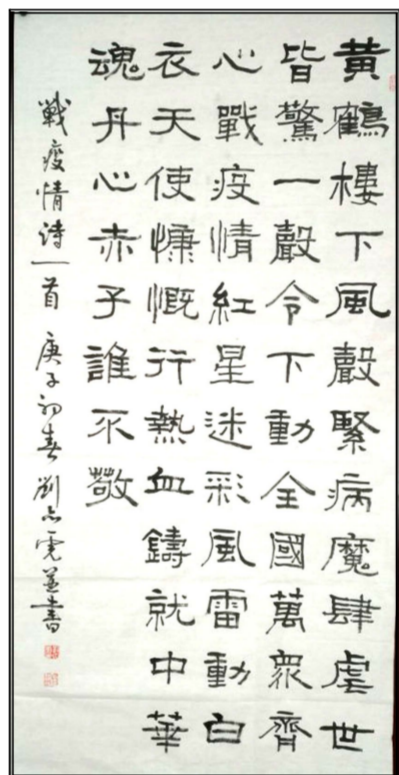 黃鶴樓下風聲緊病魔肆虐世
皆驚一聲令下動全國萬衆齊
心戰疫情紅星迷彩風雷動白
衣天使慷慨行熱血鑄就中華
魂丹心赤子誰不敬
戰疫情诗一首 庚子初春 劉 書